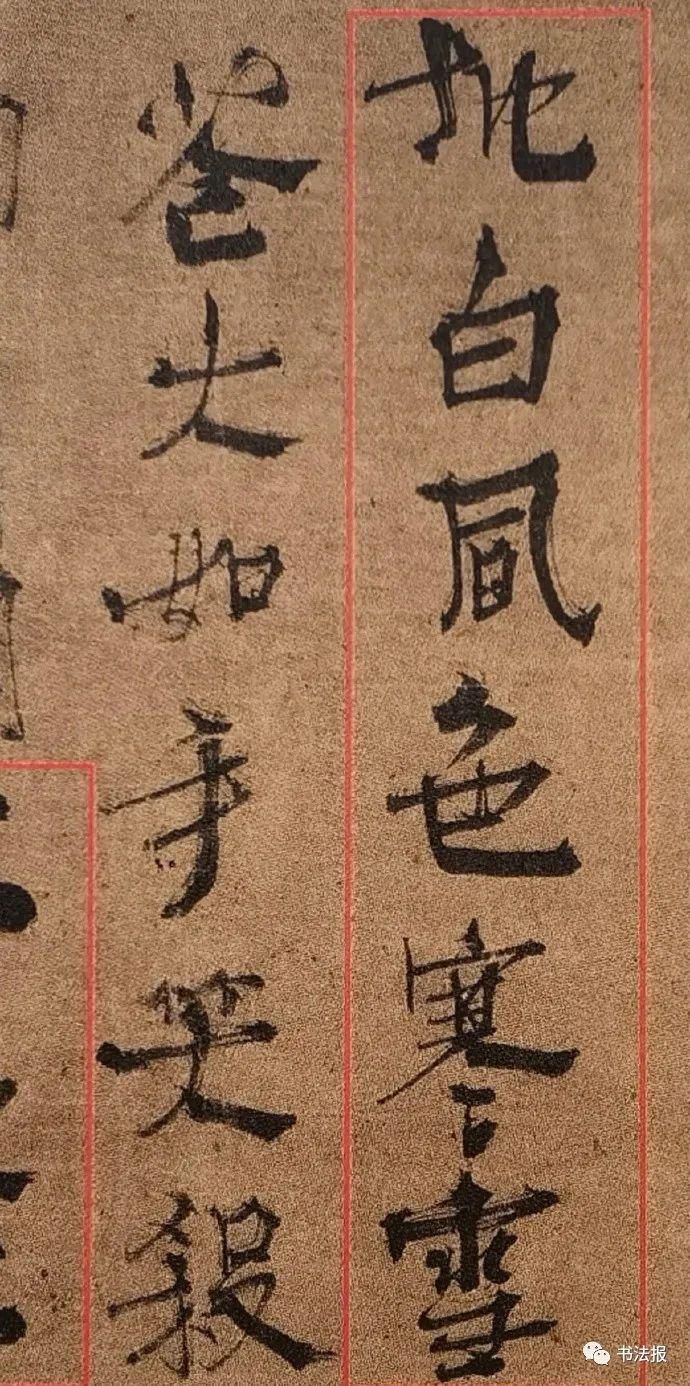 地白風色寒雪
花大如手笑殺
书法报